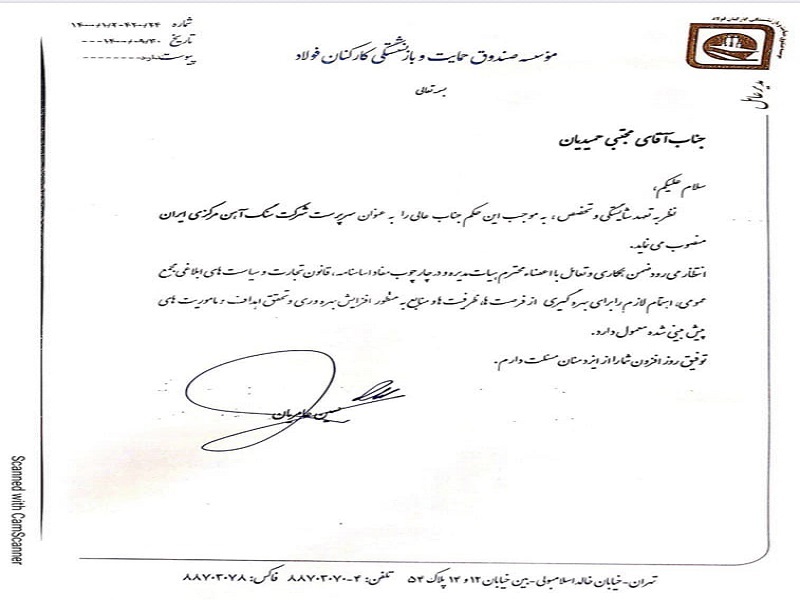 مؤسسه صندوق حمایت و بازنشستگی کارکنان فولاد
شماره
تاریخ ۱۴۰۰-۰۹-۳۰
پیوست ندارد
بسمه تعالی
مدیرعامل
جناب آقای مجتبی حمیدیان
سلام علیکم،
نظر به تعهد، شایستگی و تخصص، به موجب این حکم جناب عالی را به عنوان سرپرست شرکت سنگ آهن مرکزی ایران
منصوب می نماید.
انتظار می رود ضمن همکاری و تعامل با اعضاء محترم هیات مدیره و در چارچوب مفاد اساسنامه، قانون تجارت و سیاست های ابلاغی مجمع
عمومی، اهتمام لازم را برای بهره گیری از فرصت ها، ظرفیت ها و منابع به منظور افزایش بهره وری و تحقق اهداف و ماموریت های
پیش بینی شده معمول دارد.
توفیق روز افزون شما را از ایزد منان مسئلت دارم.
حسین عامریان
تهران-خیابان خالد اسلامبولی-بین خیابان ۱۲ و ۱۴ پلاک ۵۴ تلفن: ۴-۸۸۷۰۳۰۷۰ فاکس: ۸۸۷۰۳۰۷۸
Scanned with CamScanner